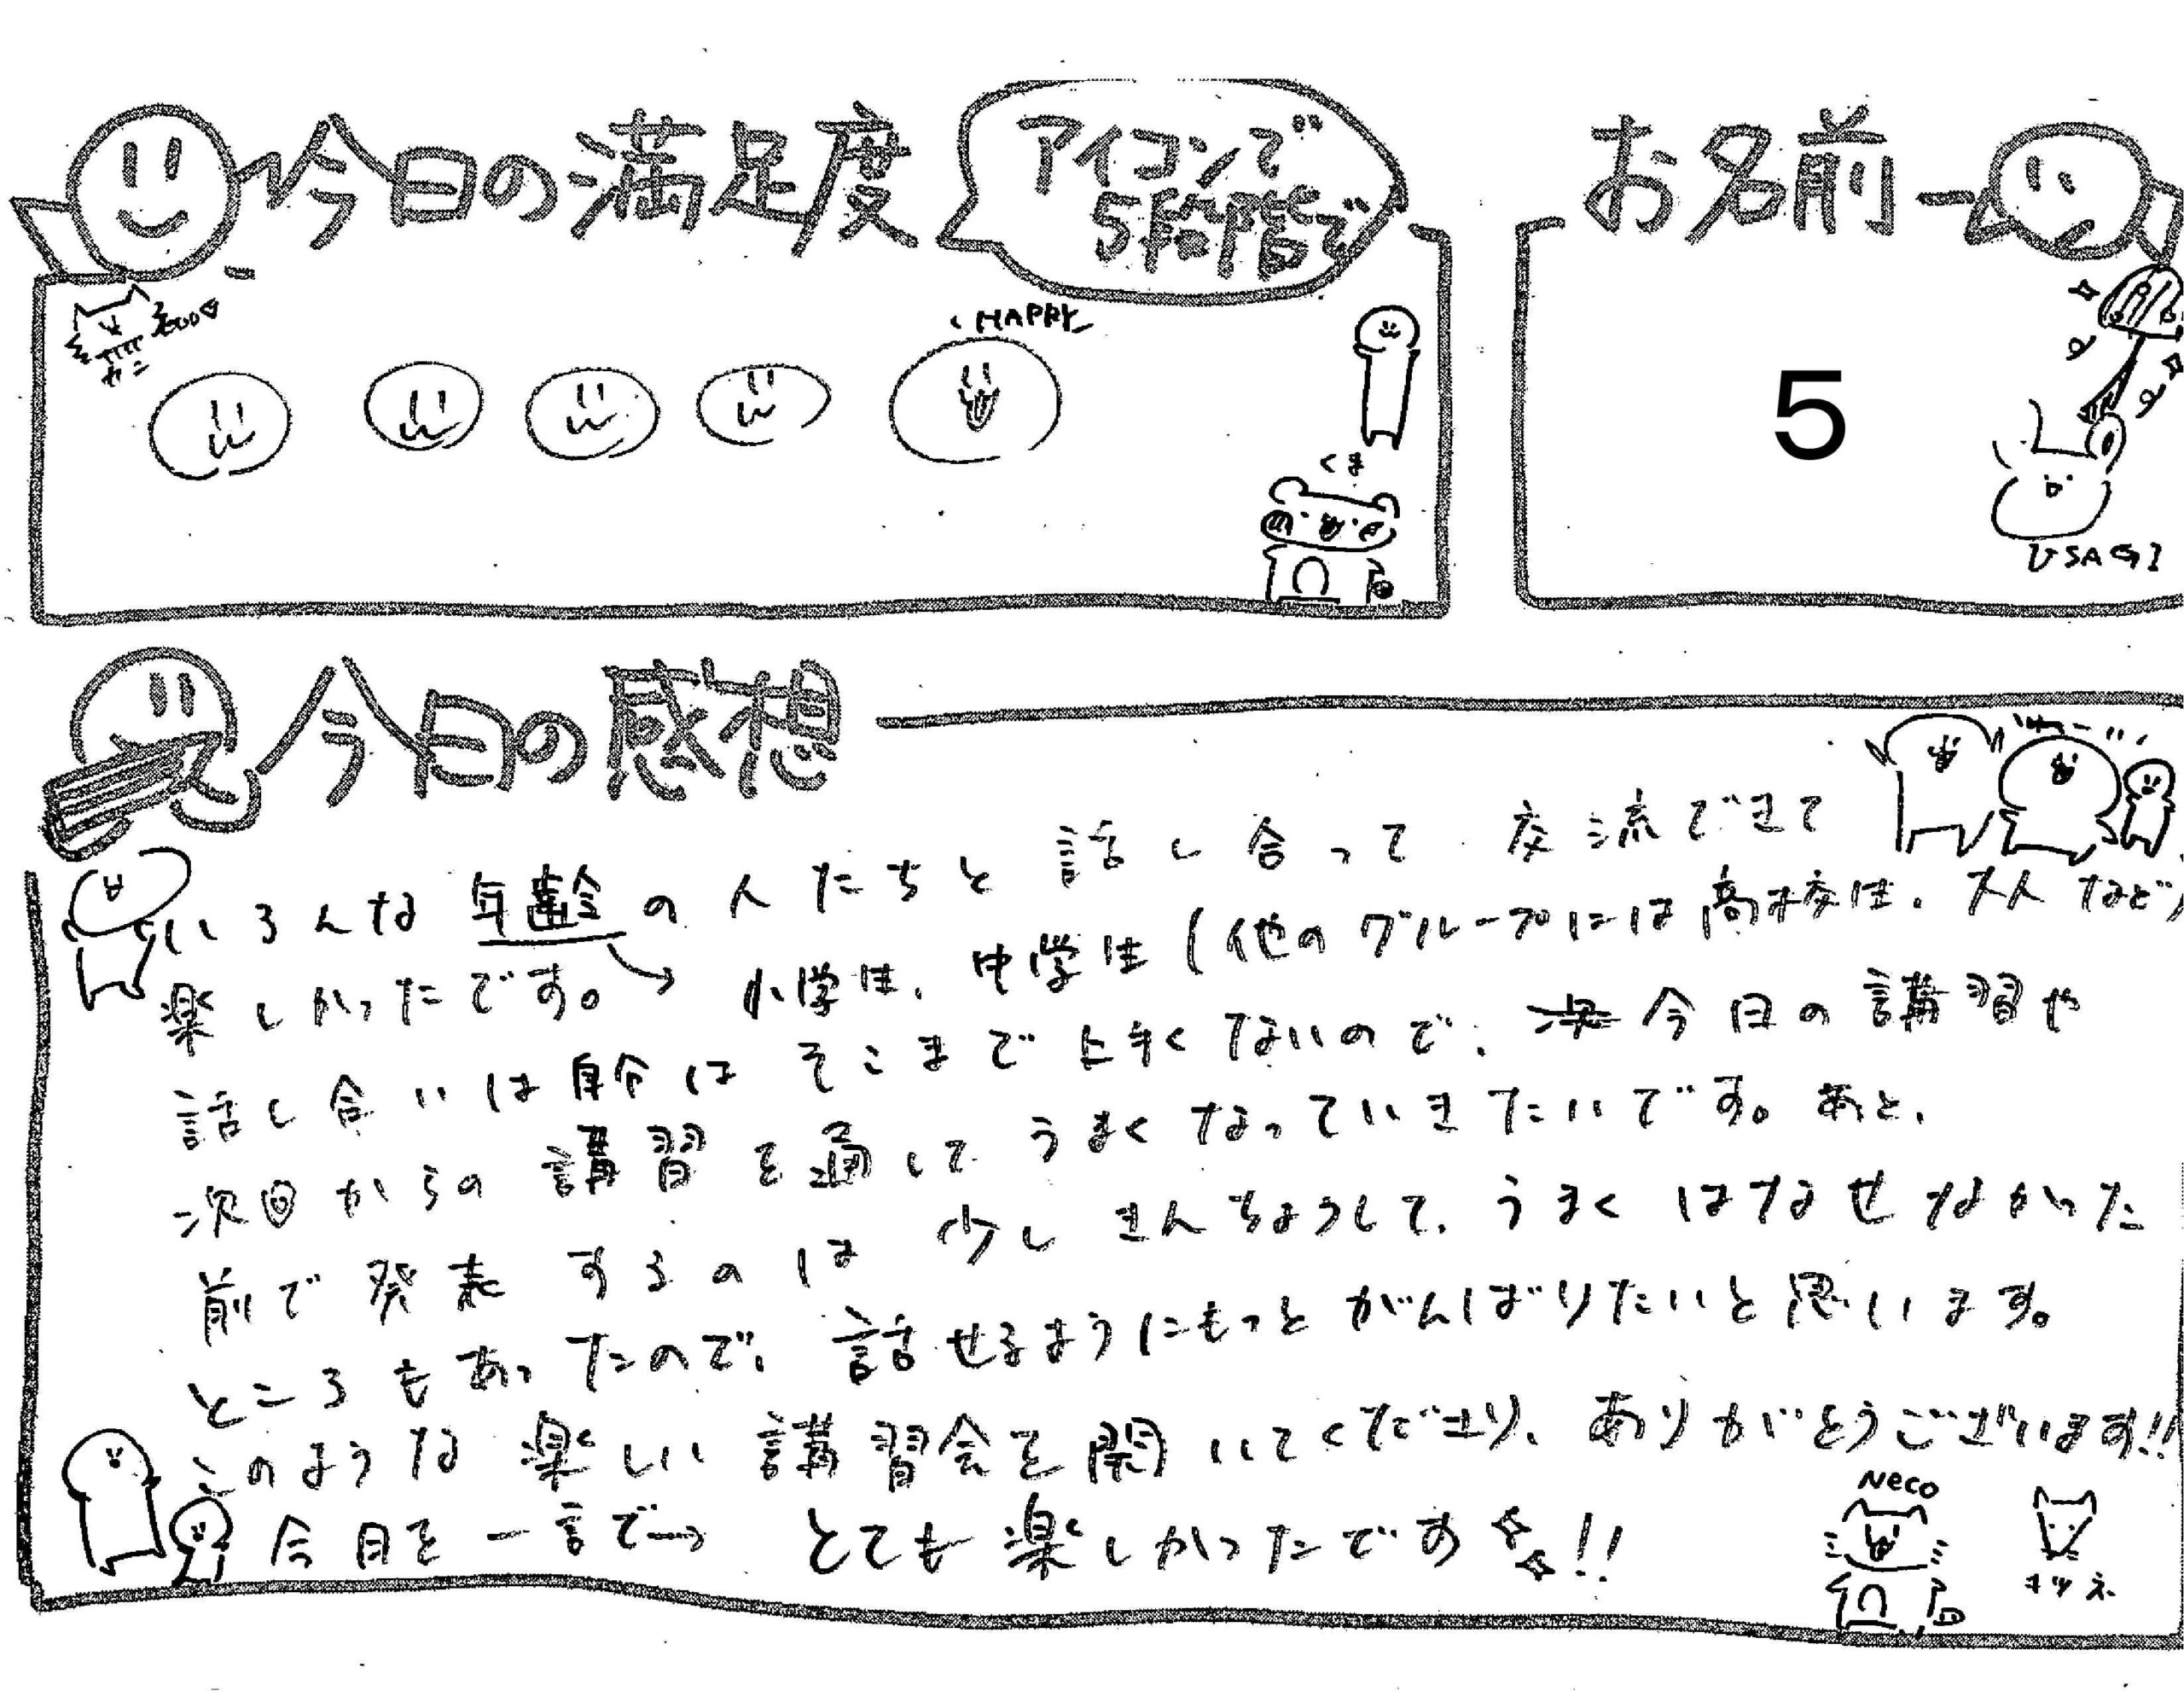 今日の満足度
アイコンで
5段階で
お名前
カニ
HAPPY
くま
5
USAGI
今日の感想
わーい
いろんな年齢の人たちと話し合って交流できて
楽しかったです。→小学生、中学生(他のグループには高校生、大人など)
話し合いは自分はそこまで上手くないので、今日の講習や
次回からの講習を通してうまくなっていきたいです。あと、
前で発表するのは少しきんちょうして、うまくはなせなかった
ところもあったので、話せるようにもっとがんばりたいと思います。
このような楽しい講習会を開いてくださり、ありがとうございます!!
今日を一言で→ とても楽しかったです!!
Neco
キツネ